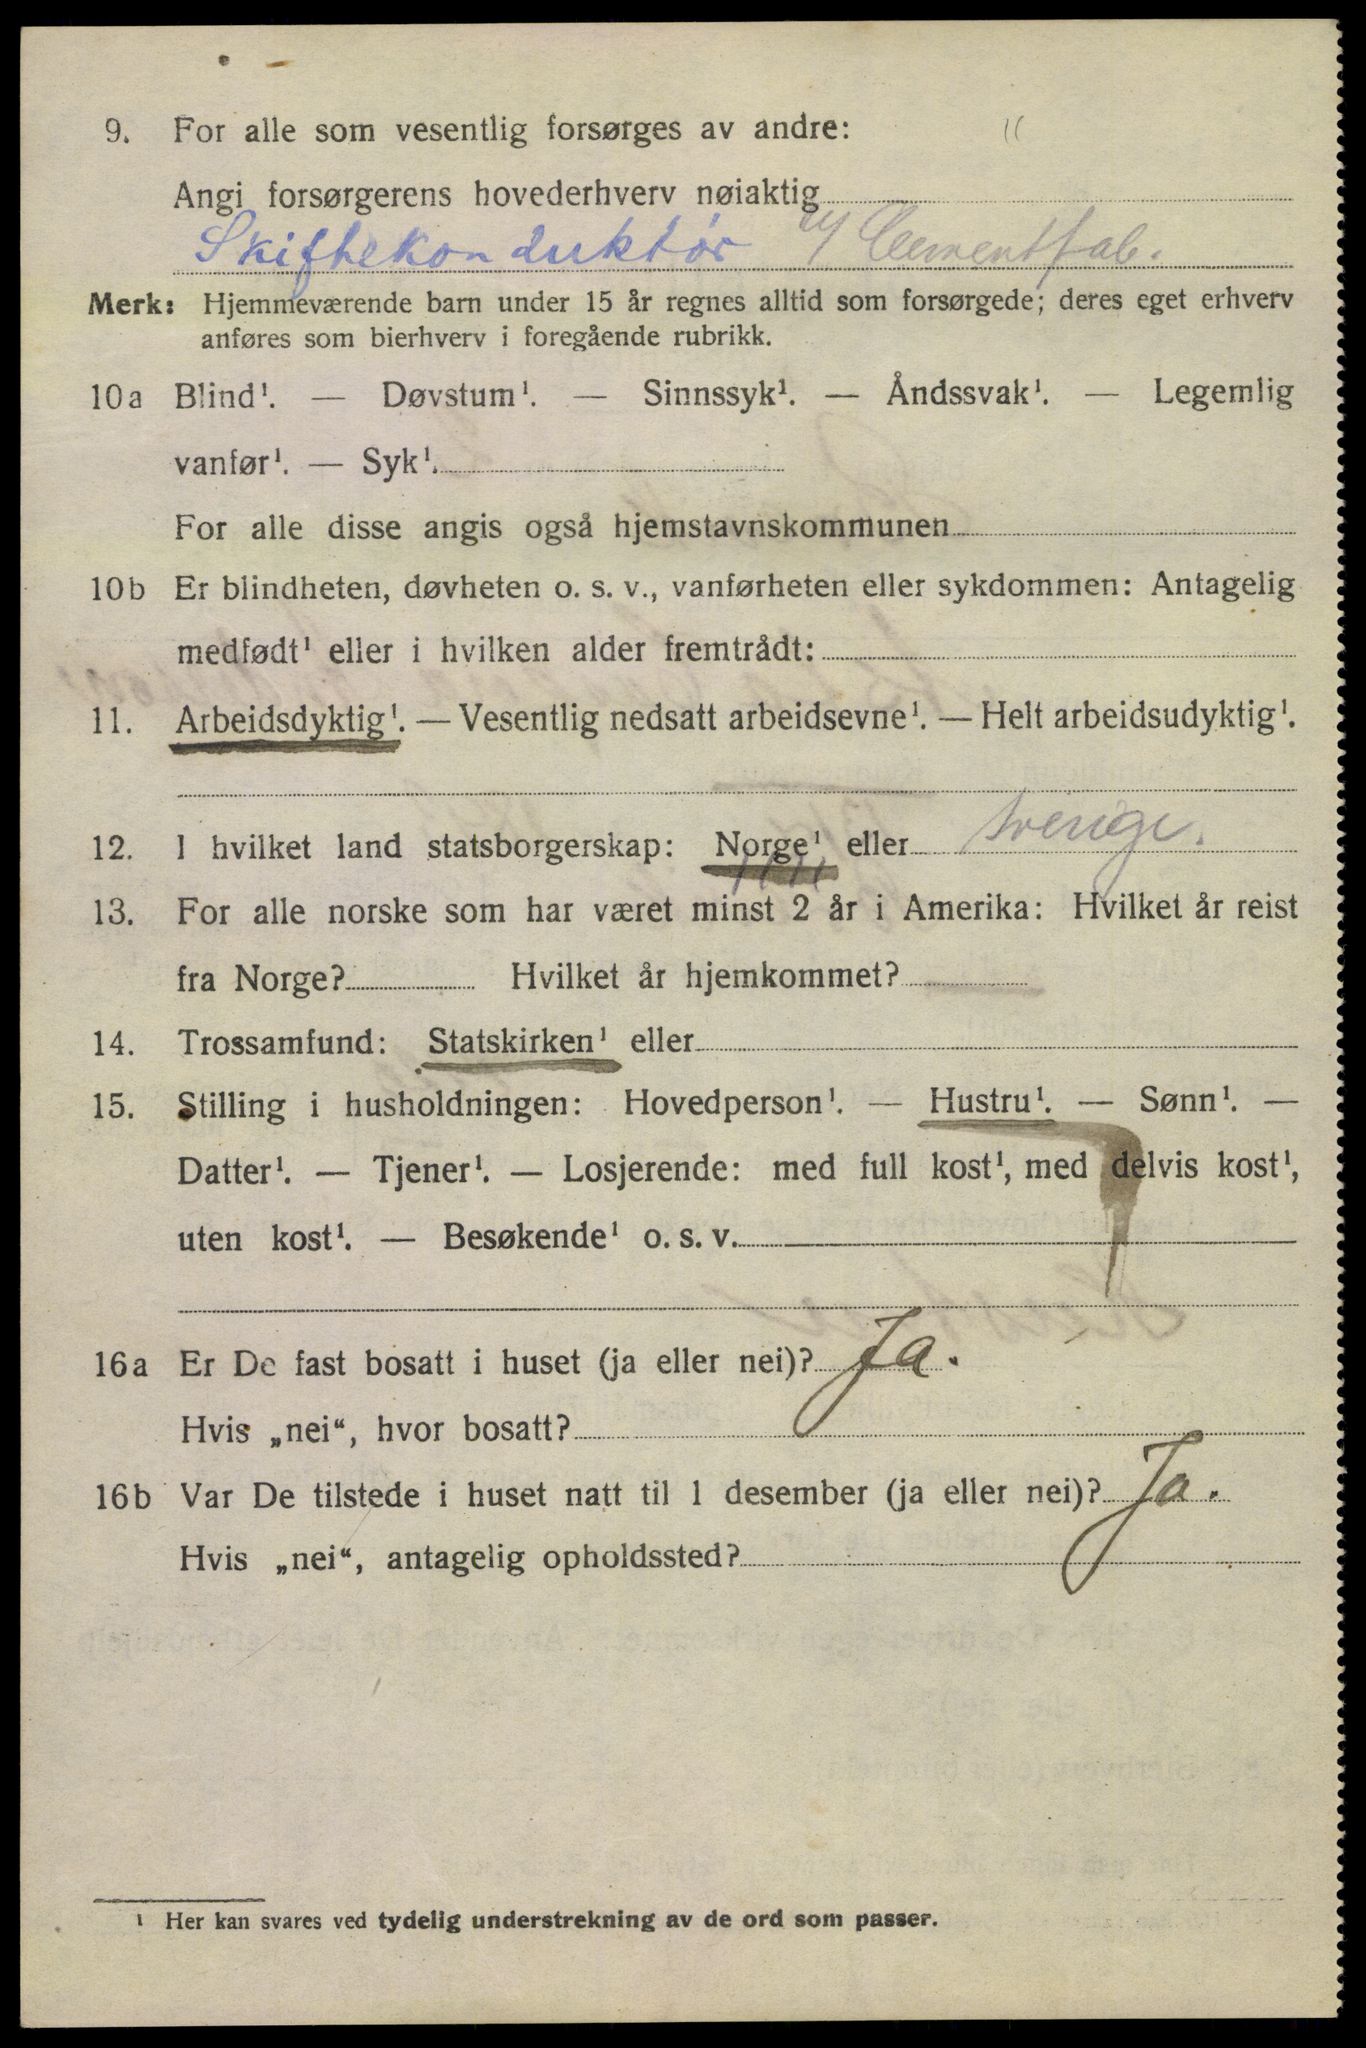 9. For alle som vesentlig forsørges av andre:
Angi forsørgerens hovederhverv nøiaktig
Skiftekonduktør v/ Cementfab.
Merk: Hjemmeværende barn under 15 år regnes alltid som forsørgede; deres eget erhverv
anføres som bierhverv i foregående rubrikk.
10a Blind¹. — Døvstum¹. — Sinnssyk¹. — Åndssvak¹. — Legemlig
vanfør¹. — Syk¹.
For alle disse angis også hjemstavnskommunen
10b Er blindheten, døvheten o. s. v., vanførheten eller sykdommen: Antagelig
medfødt¹ eller i hvilken alder fremtrådt:
11. Arbeidsdyktig¹. — Vesentlig nedsatt arbeidsevne¹. — Helt arbeidsudyktig¹.
12. I hvilket land statsborgerskap: Norge¹ eller Sverige.
13. For alle norske som har været minst 2 år i Amerika: Hvilket år reist
fra Norge? Hvilket år hjemkommet?
14. Trossamfund: Statskirken¹ eller
15. Stilling i husholdningen: Hovedperson¹. — Hustru¹. — Sønn¹. —
Datter¹. — Tjener¹. — Losjerende: med full kost¹, med delvis kost¹,
uten kost¹. — Besøkende¹ o. s. v.
16a Er De fast bosatt i huset (ja eller nei)? Ja.
Hvis „nei“, hvor bosatt?
16b Var De tilstede i huset natt til 1 desember (ja eller nei)? Ja.
Hvis „nei“, antagelig opholdssted?
¹ Her kan svares ved tydelig understrekning av de ord som passer.